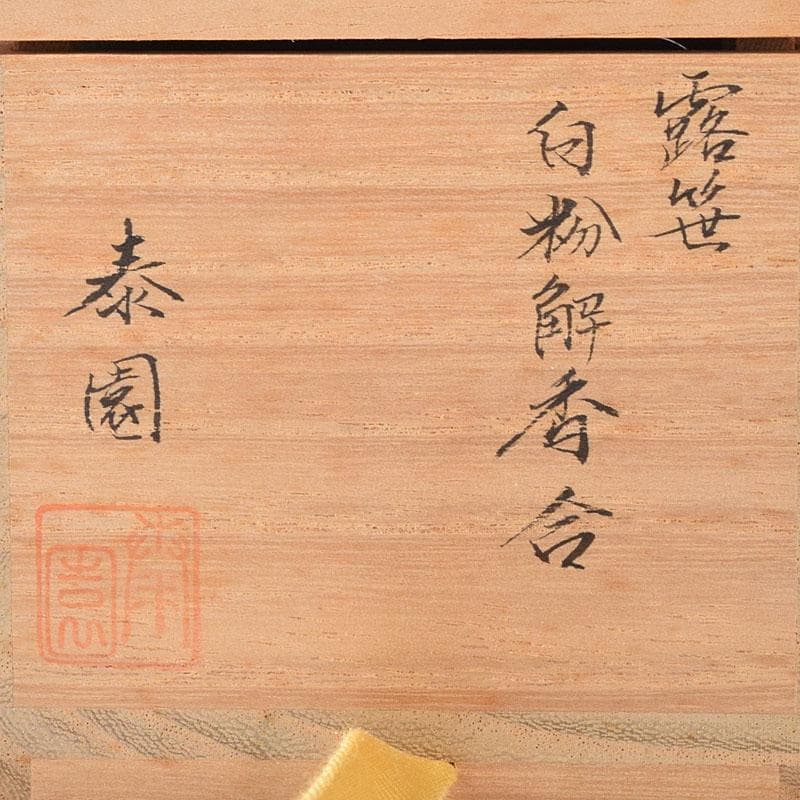 露笹
白粉解香合
泰園